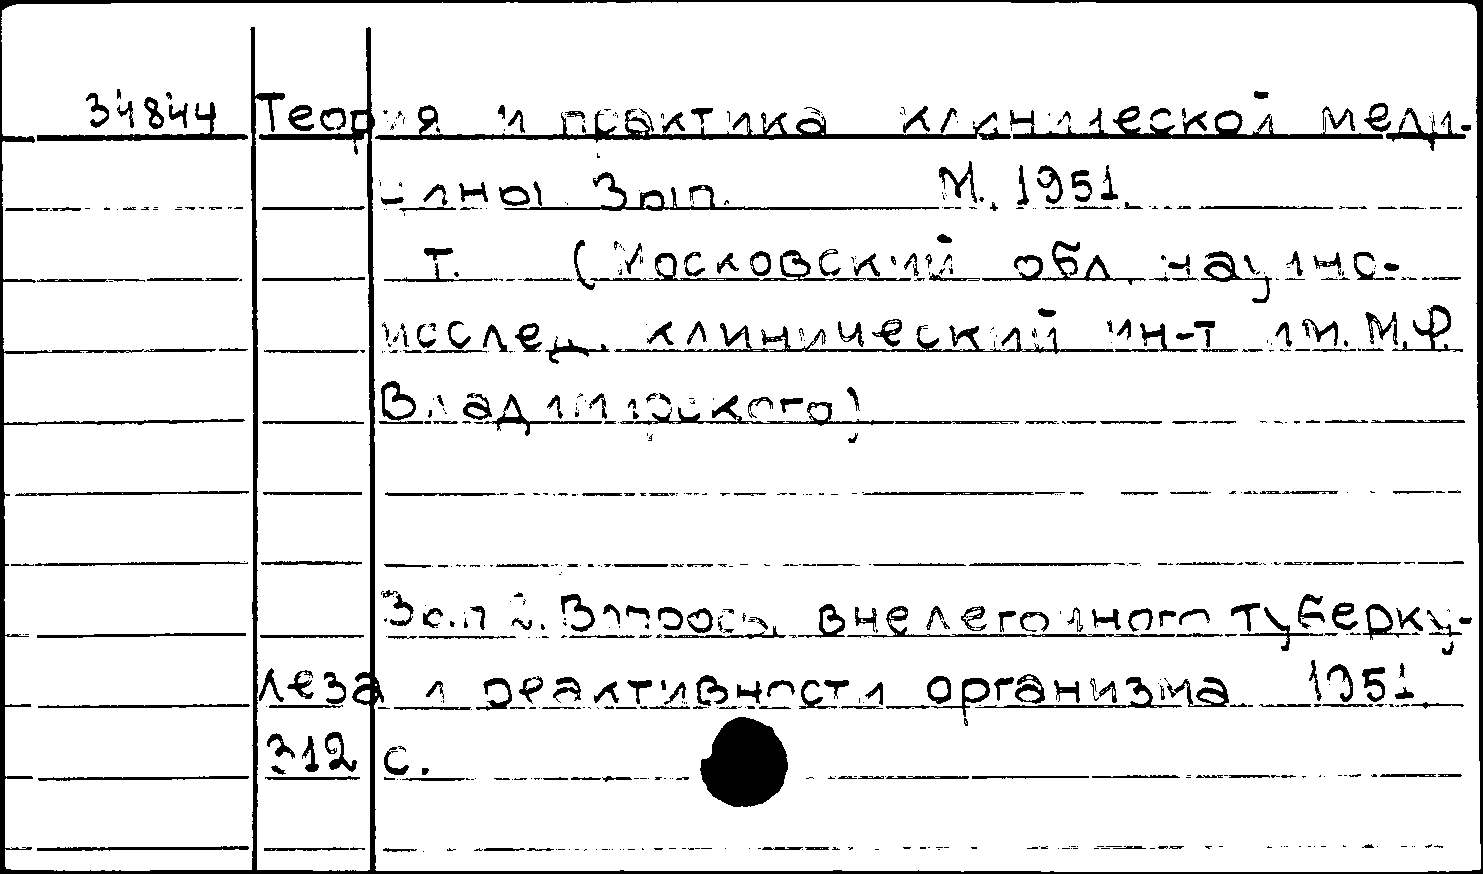 34844 Теория и практика клинической меди-
цины. Вып. М. 1951.
т. (Московский обл. научно-
исслед. клинический ин-т им. М.Ф.
Владимирского)
Вып 2. Вопросы внелегочного туберку-
леза и реактивности организма 1951.
312 с.